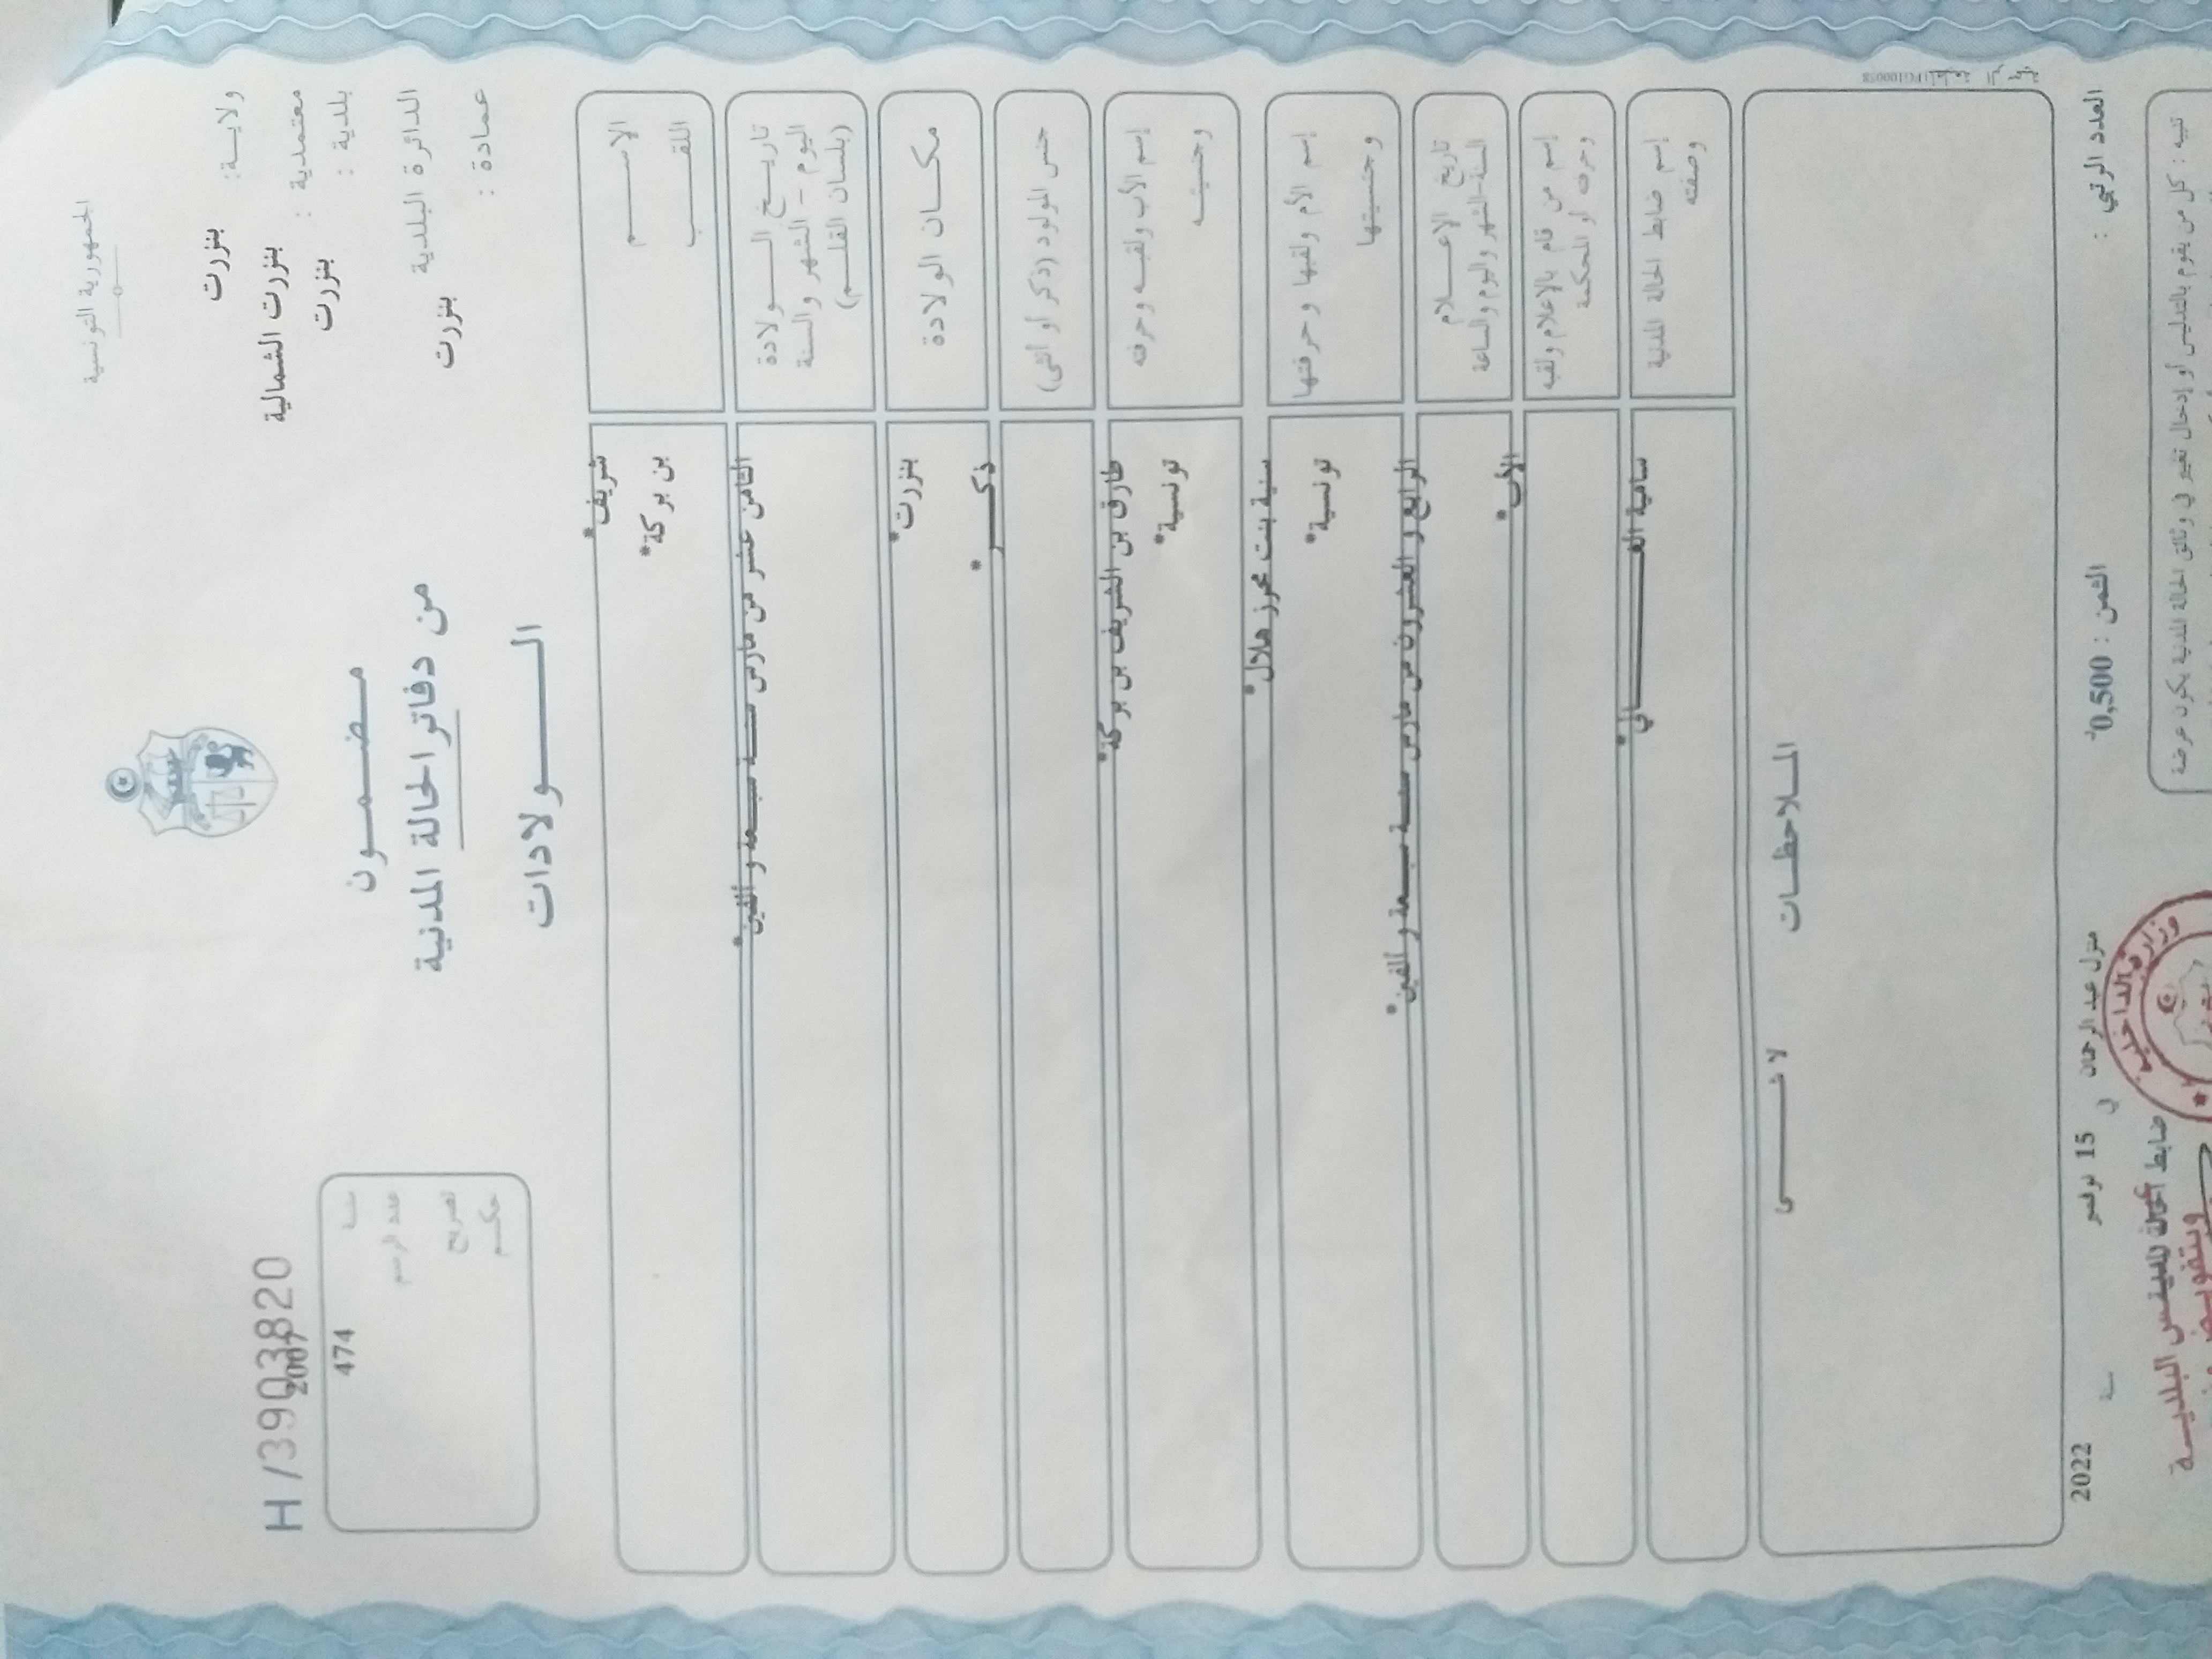 الجمهورية التونسية
ولايـــة:
بنزرت
معتمدية :
بنزرت الشمالية
بلدية :
بنزرت
الدائرة البلدية
بنزرت
عمادة :
H /39038820
2007
سنة
474
عدد الرسم
تصريح
حكم
مـضـمـون
من دفاتر الحالة المدنية
الـــولادات
الاســـم
اللقـــب
شريف*
بن بركة*
تاريــخ الـــولادة
اليوم – الشهر والسنة
(بلسان القلـم)
الثامن عشر من مارس سنــة سبــعة و ألفين*
مكــان الولادة
بنزرت*
جنس المولود (ذكر أو أنثى)
ذكـــر*
إسم الأب ولقبه وحرفته
وجنسيتـه
طارق بن الشريف بن بركة*
تونسية*
إسم الأم ولقبها وحرفتها
وجنسيتها
سنية بنت محرز هلال*
تونسية*
تاريخ الإعـــلام
السنة-الشهر واليوم والساعة
الرابع و العشرون من مارس سنــة سبــعة و ألفين*
إسم من قام بالإعلام ولقبه
وحرفته أو المحكمة
الأب*
إسم ضابط الحالة المدنية
وصفته
سامية
المـلاحظـات
لا شـــيء
العدد الرتبي :
الثمن : 0,500د
منزل عبد الرحمان في 15 نوفمبر سنة 2022
تنبيه : كل من يقوم بالتدليس أو إدخال تغيير في وثائق الحالة المدنية يكون عرضة
وزارة الداخلية
ضابط الحالة المدنية
البلديـــة